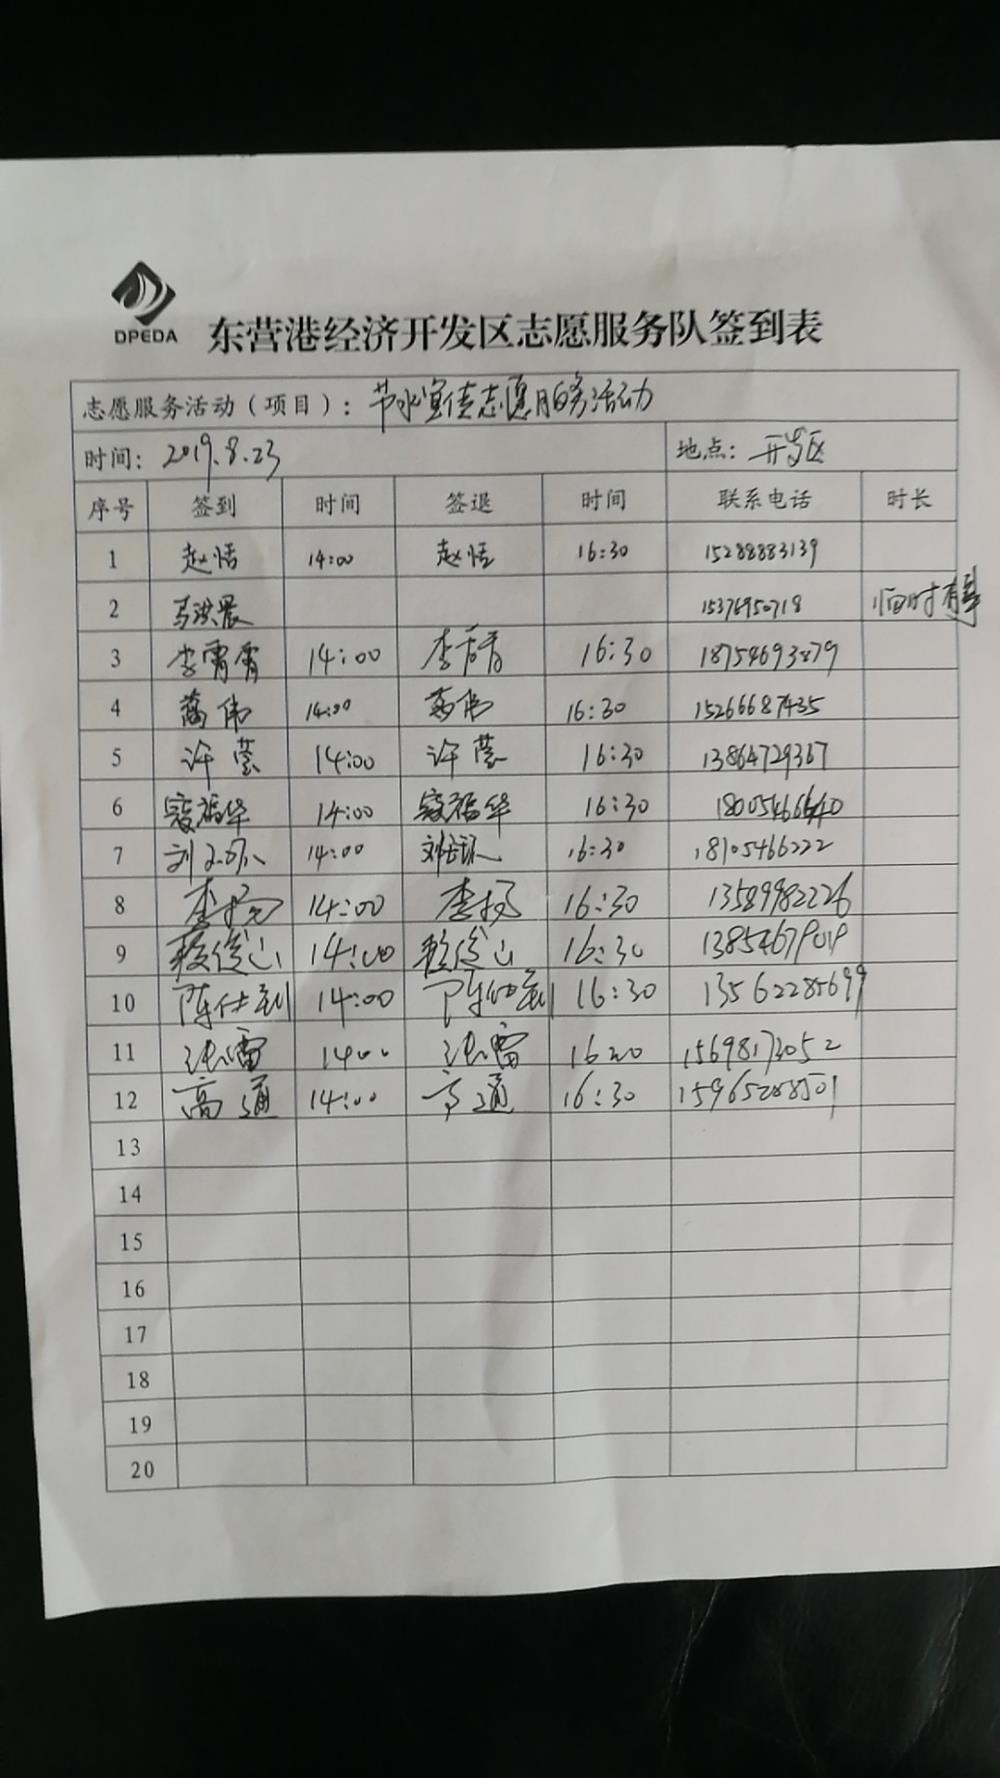 DPEDA
东营港经济开发区志愿服务队签到表
志愿服务活动（项目）：节水宣传志愿服务活动
时间：2019.8.23 地点：开发区
序号 签到 时间 签退 时间 联系电话 时长
1 赵恬 14:00 赵恬 16:30 15288883139
2 马洪晨 15376950718 临时有事
3 李霄霄 14:00 16:30
4 伟 14:00 伟 16:30 15266687435
5 许莹 14:00 许莹 16:30 13864729367
6 寇福华 14:00 寇福华 16:30
7 刘 14:00 刘 16:30 18105466222
8 李扬 14:00 李扬 16:30 13589982226
9 俊山 14:00 俊山 16:30
10 陈仕 14:00 陈仕 16:30 13562285699
11 张雷 1400 张雷 15698173052
12 高通 14:00 高通 16:30
13
14
15
16
17
18
19
20